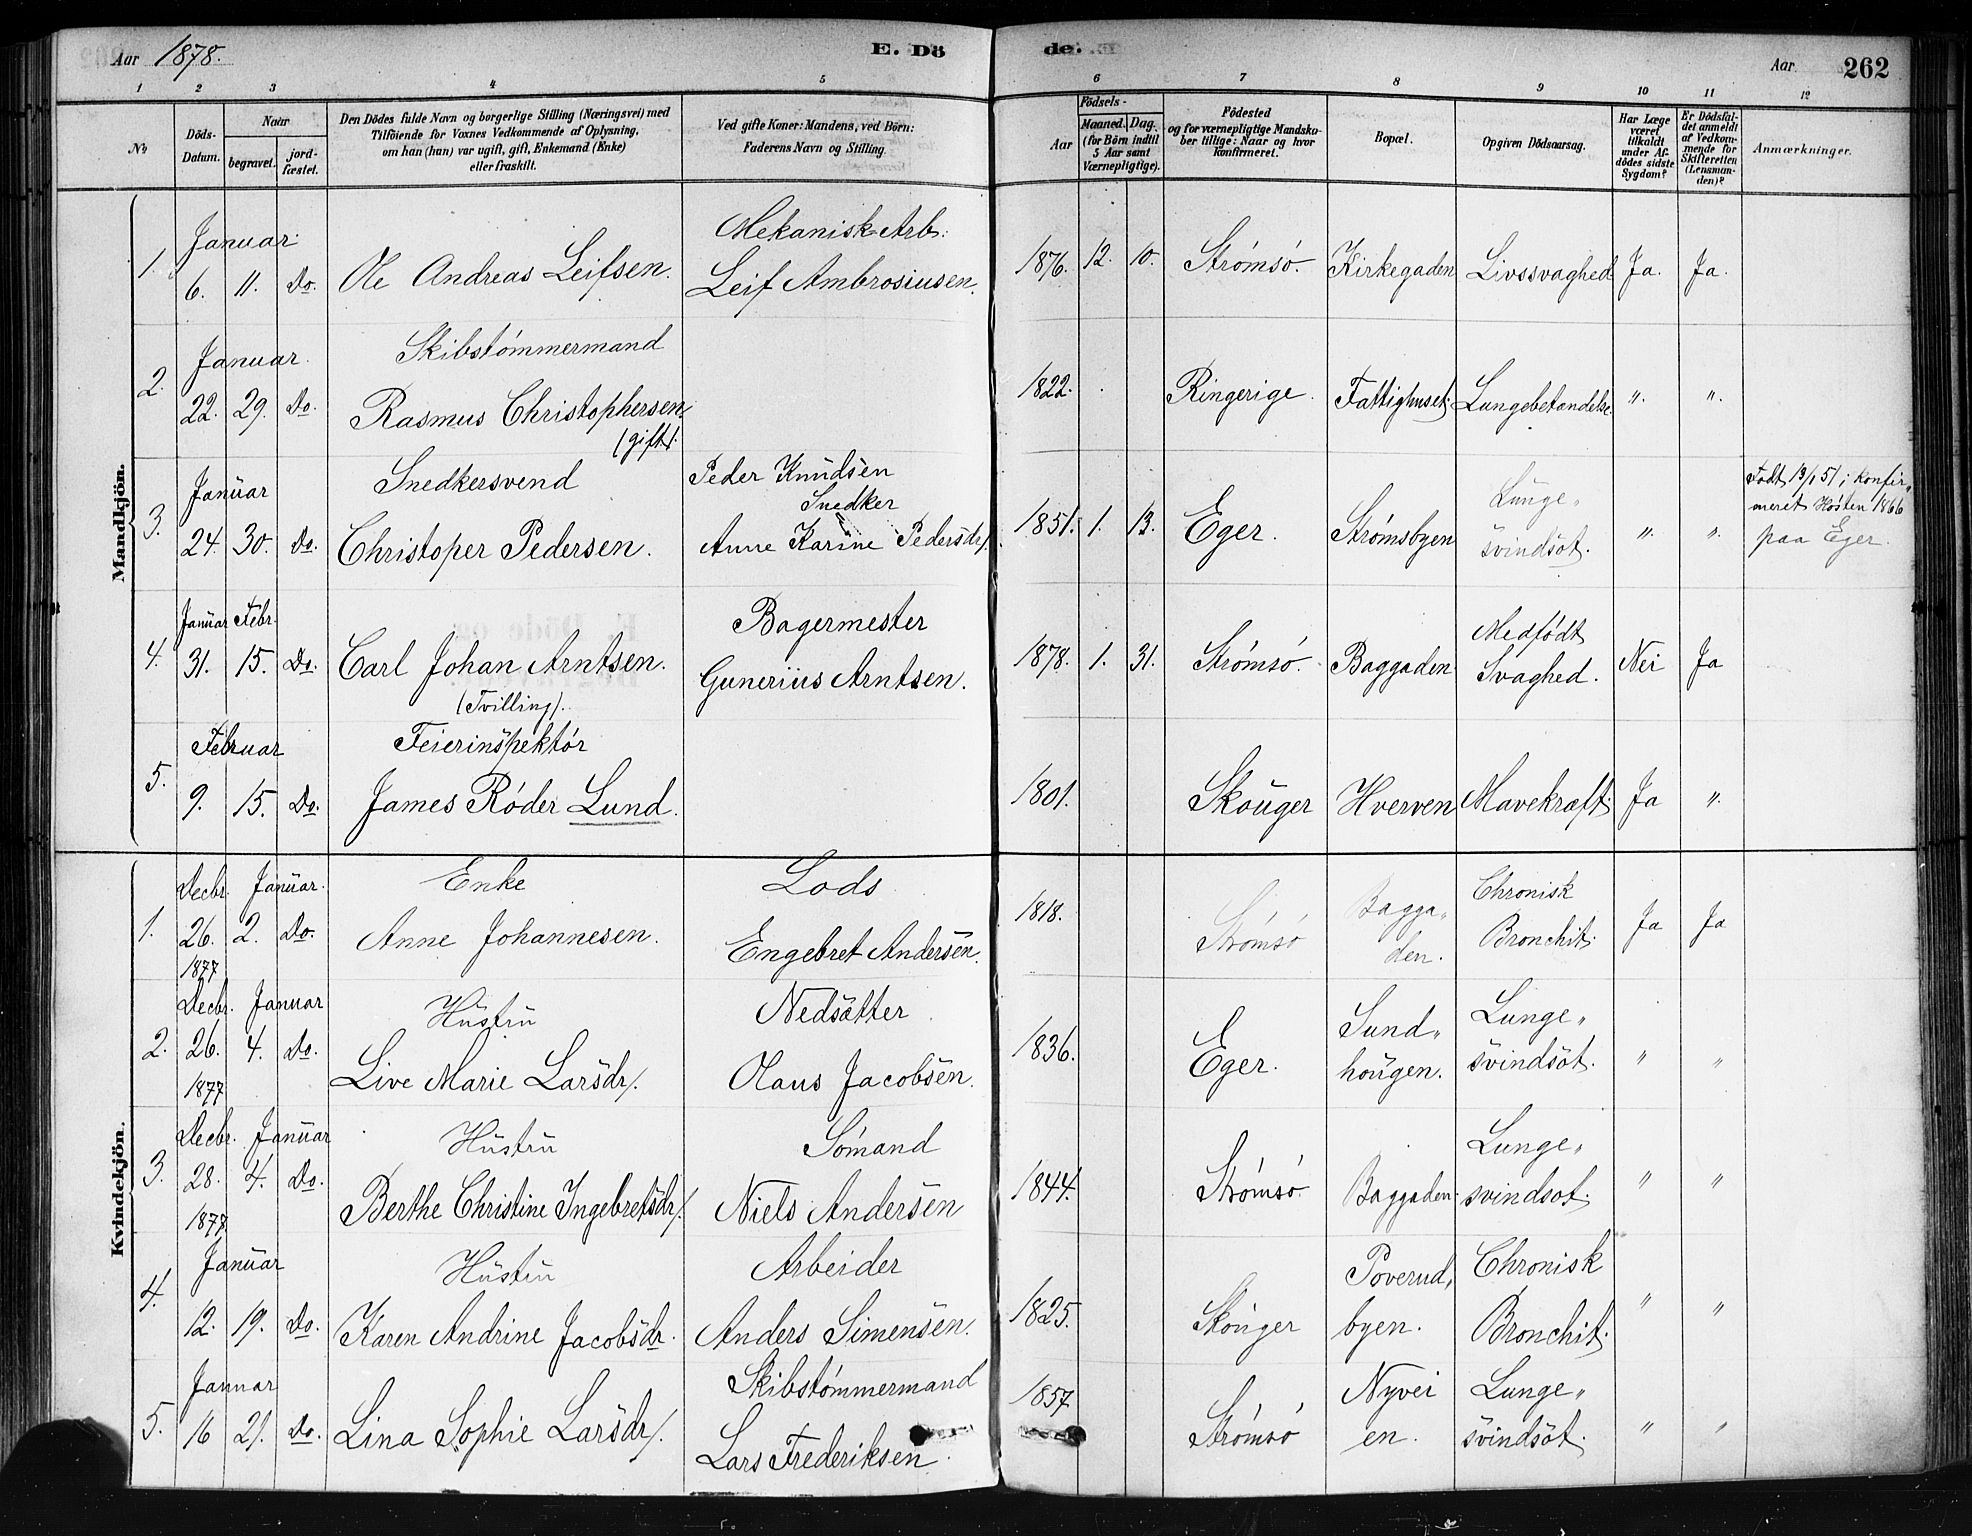 Aar 1878. E. Dö de. Aar 262
1 2 3 4 5 6 7 8 9 10 11 12
No
Döds-Datum.
Naar
begravet.
jord-fæstet.
Den Dödes fulde Navn og borgerlige Stilling (Næringsvei) med
Tilföiende for Voxnes Vedkommende af Oplysning,
om han (hun) var ugift, gift, Enkemand (Enke)
eller fraskilt.
Ved gifte Koner: Mandens, ved Börn:
Faderens Navn og Stilling.
Födsels-
Aar
Maaned. Dag.
(for Börn indtil
5 Aar samt
Værnepligtige).
Födested
og for værnepligtige Mandska-
ber tillige: Naar og hvor
konfirmeret.
Bopæl.
Opgiven Dödsaarsag.
Har Læge
været
tilkaldt
under Af-
dödes sidste
Sygdom?
Er Dödsfal-
det anmeldt
af Vedkom-
mende for
Skifteretten
(Lensman-
den)?
Anmærkninger.
Mandkjön.
Januar Mekanisk Arb:
1. 6. 11. Do. Ole Andreas Leifsen. Leif Ambrosiusen. 1876. 12. 10. Strømsø. Kirkegaden Livssvaghed Ja. Ja.
Januar Skibstømmermand
2. 22. 29. Do. Rasmus Christophersen 1822. Ringerige. Fattighuset. Lungebetændelse. ". ".
(gift).
Januar Snedkersvend Peder Knudsen Lunge„ Født 13/1 51; konfir„
Snedker meret Høsten 1866
3. 24. 30. Do. Christoper Pedersen. Anne Karine Pedersdr/. 1851. 1. 13. Eger. Strømsbyen svindsot. ". ". paa Eger.
Januar Febr. Bagermester Medfødt
4. 31. 15. Do. Carl Johan Arntsen. Gunerius Arntsen. 1878. 1. 31. Strømsø. Baggaden Svaghed. Nei Ja
(Tvilling).
Februar Feierinspektør
5. 9. 15. Do. James Røder Lund. 1801. Skouger Hverven Mavekræft. Ja ".
Kvindekjön.
Decbr. Januar. Enke Lods Bagga„ Chronisk
1. 26. 2. Do. Anne Johannesen. Engebret Andersen. 1818. Strømsø den. Bronchit. Ja Ja
1877
Decbr. Januar Hustru Nedsætter Sund„ Lunge„
2. 26. 4. Do. Live Marie Larsdr/. Olaus Jacobsen. 1836. Eger. hougen. svindsot. " "
1877
Decbr. Januar Hustru Sømand Lunge„
3. 28. 4. Do. Berthe Christine Ingebretsdr/. Niels Andersen 1844. Strømsø. Baggaden. svindsot. " "
1877
Januar Hustru Arbeider Poverud„ Chronisk
4. 12. 19. Do. Karen Andrine Jacobsdr. Anders Simensen. 1825. Skouger byen. Bronchit. " "
Januar Skibstømmermand Nyvei Lunge„
5. 16 21. Do. Lina Sophie Larsdr/. Lars Frederiksen. 1857 Strømsø en. svindsot. " "